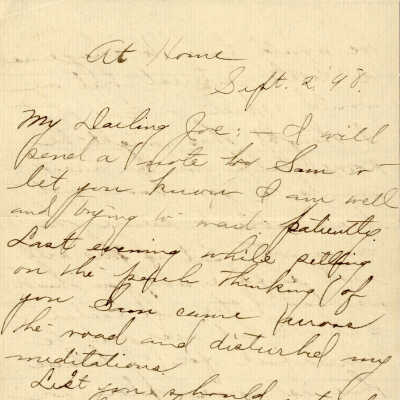 At Home
Sept. 2, 98.
My Darling Joe: — I will
send a note by Sam &
let you know I am well
and trying to wait patiently.
Last evening while sitting
on the porch thinking of
you Sam came across
the road and disturbed my
meditations
Lest you should